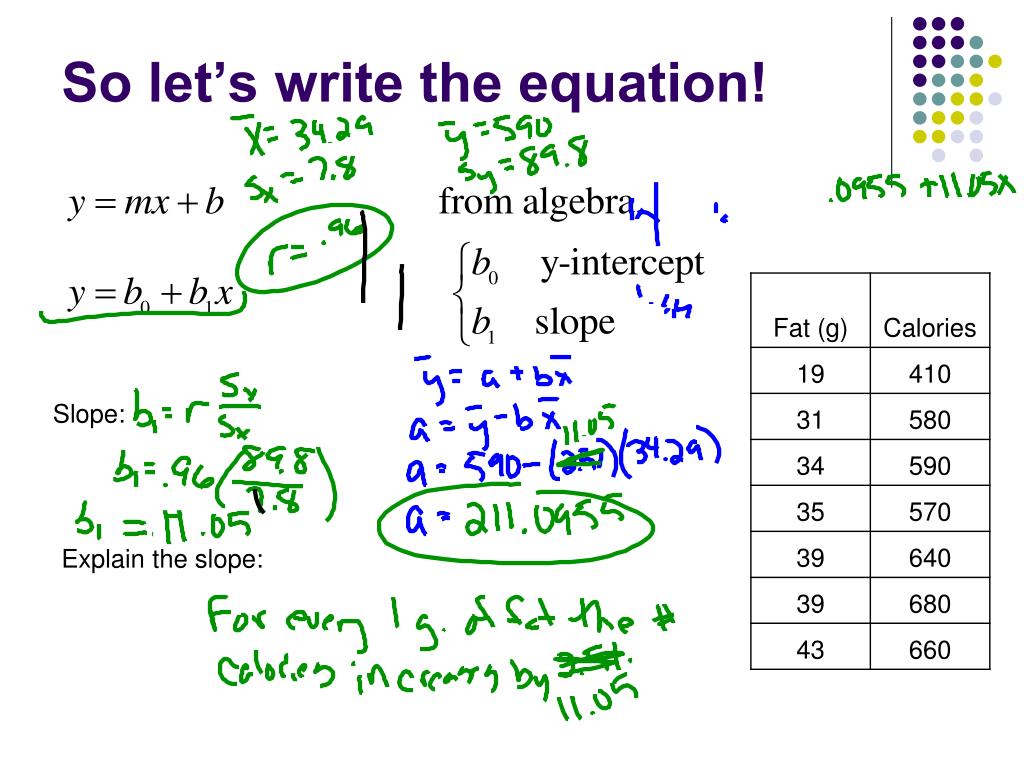 So let's write the equation!
x̄ = 34.29
ȳ = 590
sx = 7.8
sy = 89.8
.0955 + 11.05x
y = mx + b
from algebra
r = .96
y = b₀ + b₁x
b₀ y-intercept
b₁ slope
Fat (g) Calories
19 410
31 580
34 590
35 570
39 640
39 680
43 660
Slope: b₁ = r sy/sx
b₁ = .96(89.8/7.8)
b₁ = 11.05
ȳ = a + bx̄
a = ȳ - bx̄
11.05
a = 590 - ( )(34.29)
a = 211.0955
Explain the slope:
For every 1 g. of fat the #
calories increases by
11.05